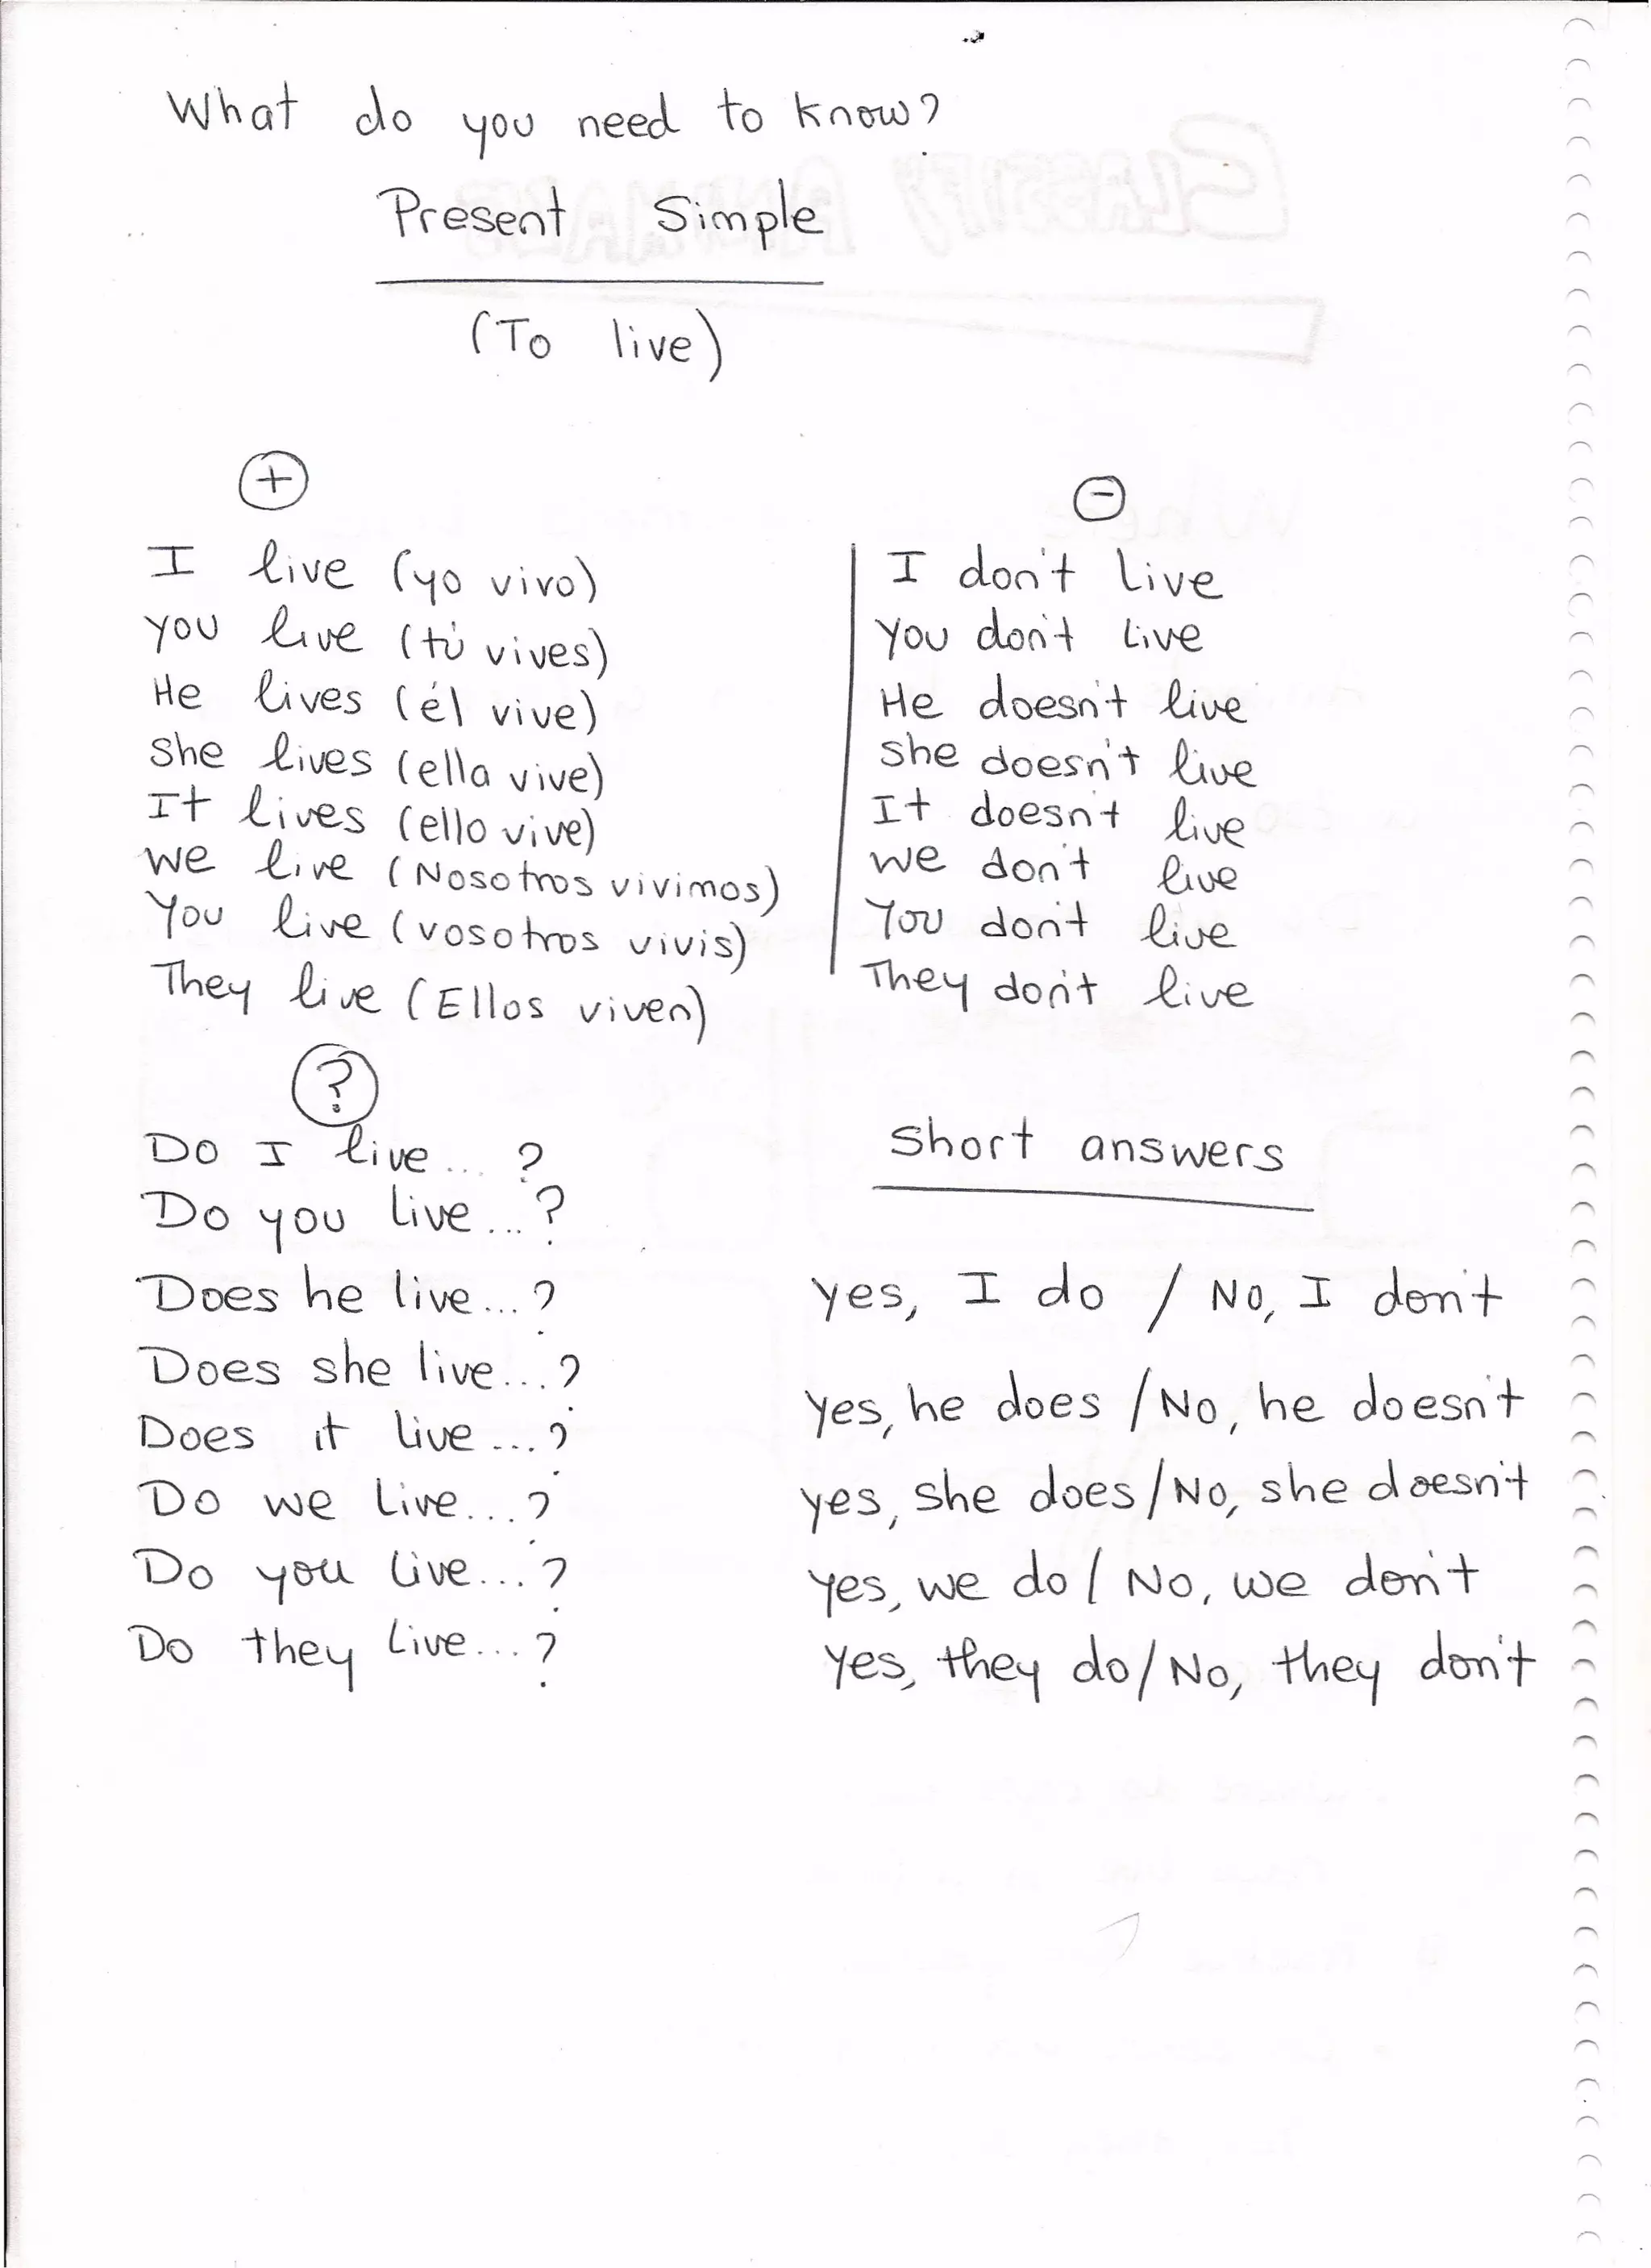 What do you need to know?
Present Simple
(To live)
+
I live (yo vivo)
you live (tú vives)
He lives (él vive)
she lives (ella vive)
It lives (ello vive)
we live (Nosotros vivimos)
You live (vosotros vivis)
They live (Ellos viven)
-
I don't live
you don't live
He doesn't live
she doesn't live
It doesn't live
we don't live
You don't live
They don't live
?
Do I live... ?
Do you live...?
Does he live...?
Does she live...?
Does it live...?
Do we live...?
Do you live...?
Do they live...?
short answers
yes, I do / No, I don't
yes, he does / No, he doesn't
yes, she does / No, she doesn't
yes, we do / No, we don't
yes, they do / No, they don't